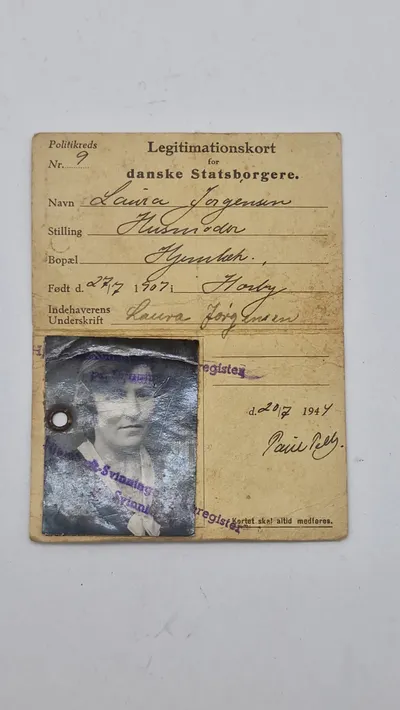 Politikreds
Nr. 9
Legitimationskort
for
danske Statsborgere.
Navn Laura Jørgensen
Stilling Husmoder
Bopæl
Født d. 27/7 1907 i Horby
Indehaverens
Underskrift Laura Jørgensen
register
d. 20/7 1944
Svinning
Svinni
register
Kortet skal altid medføres.